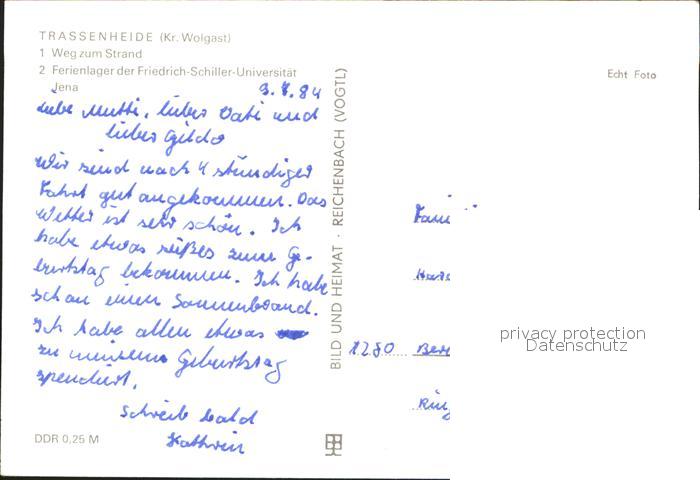 TRASSENHEIDE (Kr. Wolgast)
1 Weg zum Strand
2 Ferienlager der Friedrich-Schiller-Universität
Jena
9.7.84
Liebe Mutti, lieber Vati und
lieber Gildo
Wir sind nach 4 stündiger
Fahrt gut angekommen. Das
Wetter ist sehr schön. Ich
habe etwas süßes zum Ge-
burtstag bekommen. Ich habe
schon einen Sonnenbrand.
Ich habe allen etwas
zu meinem Geburtstag
spendiert.
Schreib bald
Kathrin
DDR 0,25 M
BILD UND HEIMAT · REICHENBACH (VOGTL)
Echt Foto
Fami
Hans
1280 Ber
Ring
privacy protection
Datenschutz